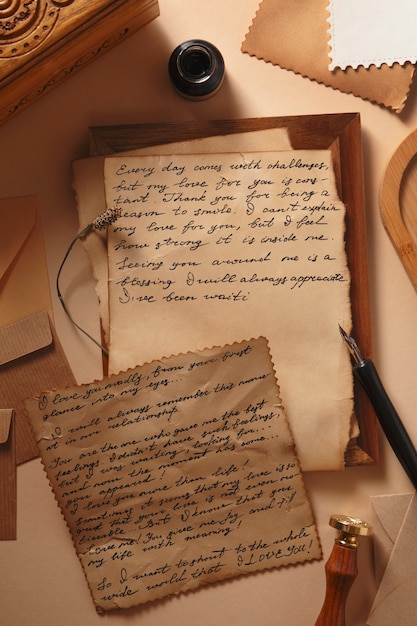 Every day comes with challenges,
but my love for you is cons-
tant. Thank you for being a
reason to smile. I can't explain
my love for you, but I feel
how strong it is inside me.
Seeing you around me is a
blessing I will always appreciate
I've been waiti
I love you madly, from your first
glance into my eyes...
I will always remember this moment
in our relationship.
You are the one who gave me the best
feelings! I didn't have such feelings,
but I was waiting, looking for...
and now the moment has some...
you appeared!
I love you more then life!
Sometimes it seems that my love is so
and that your love is not even no-
ticeable. But I know that you
love me! You give me joy and fill
my life with meaning!
So I want to shout to the whole
wide world that I LOVE YOU!